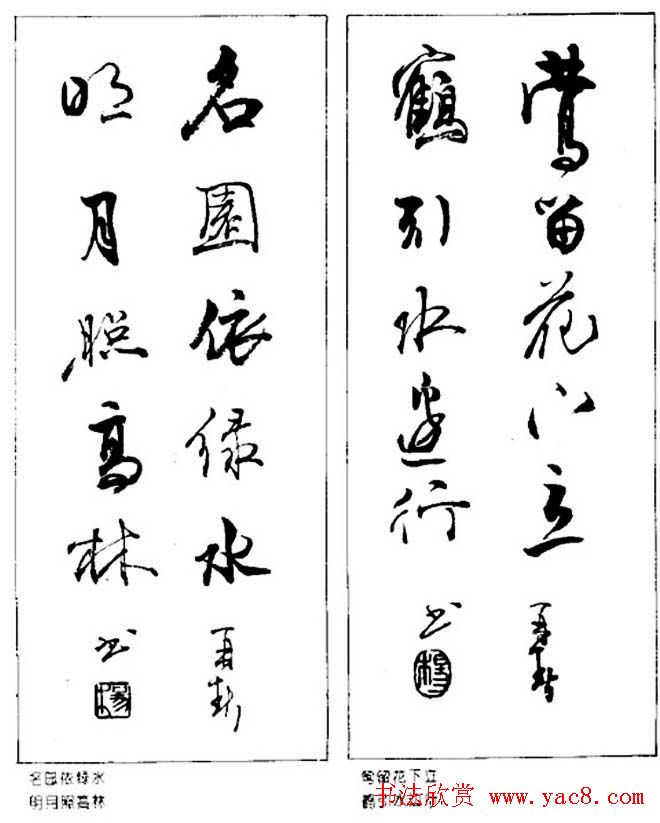 鶯留花下立
鶴引水邊行
书
名園依綠水
明月照高林
书
名园依绿水
明月照高林
莺留花下立
鹤引水边行
书法欣赏 www.yac8.com